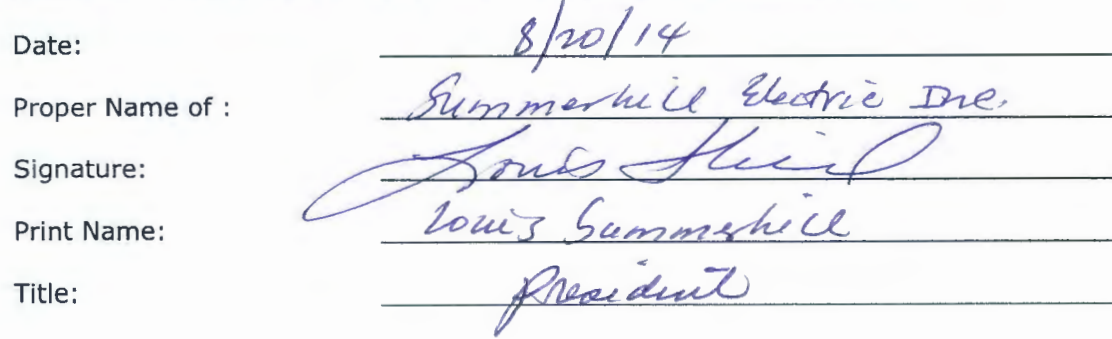 Date: 8/20/14
Proper Name of : Summerhill Electric Inc.
Signature: Louis
Print Name: Louis Summerhill
Title: President